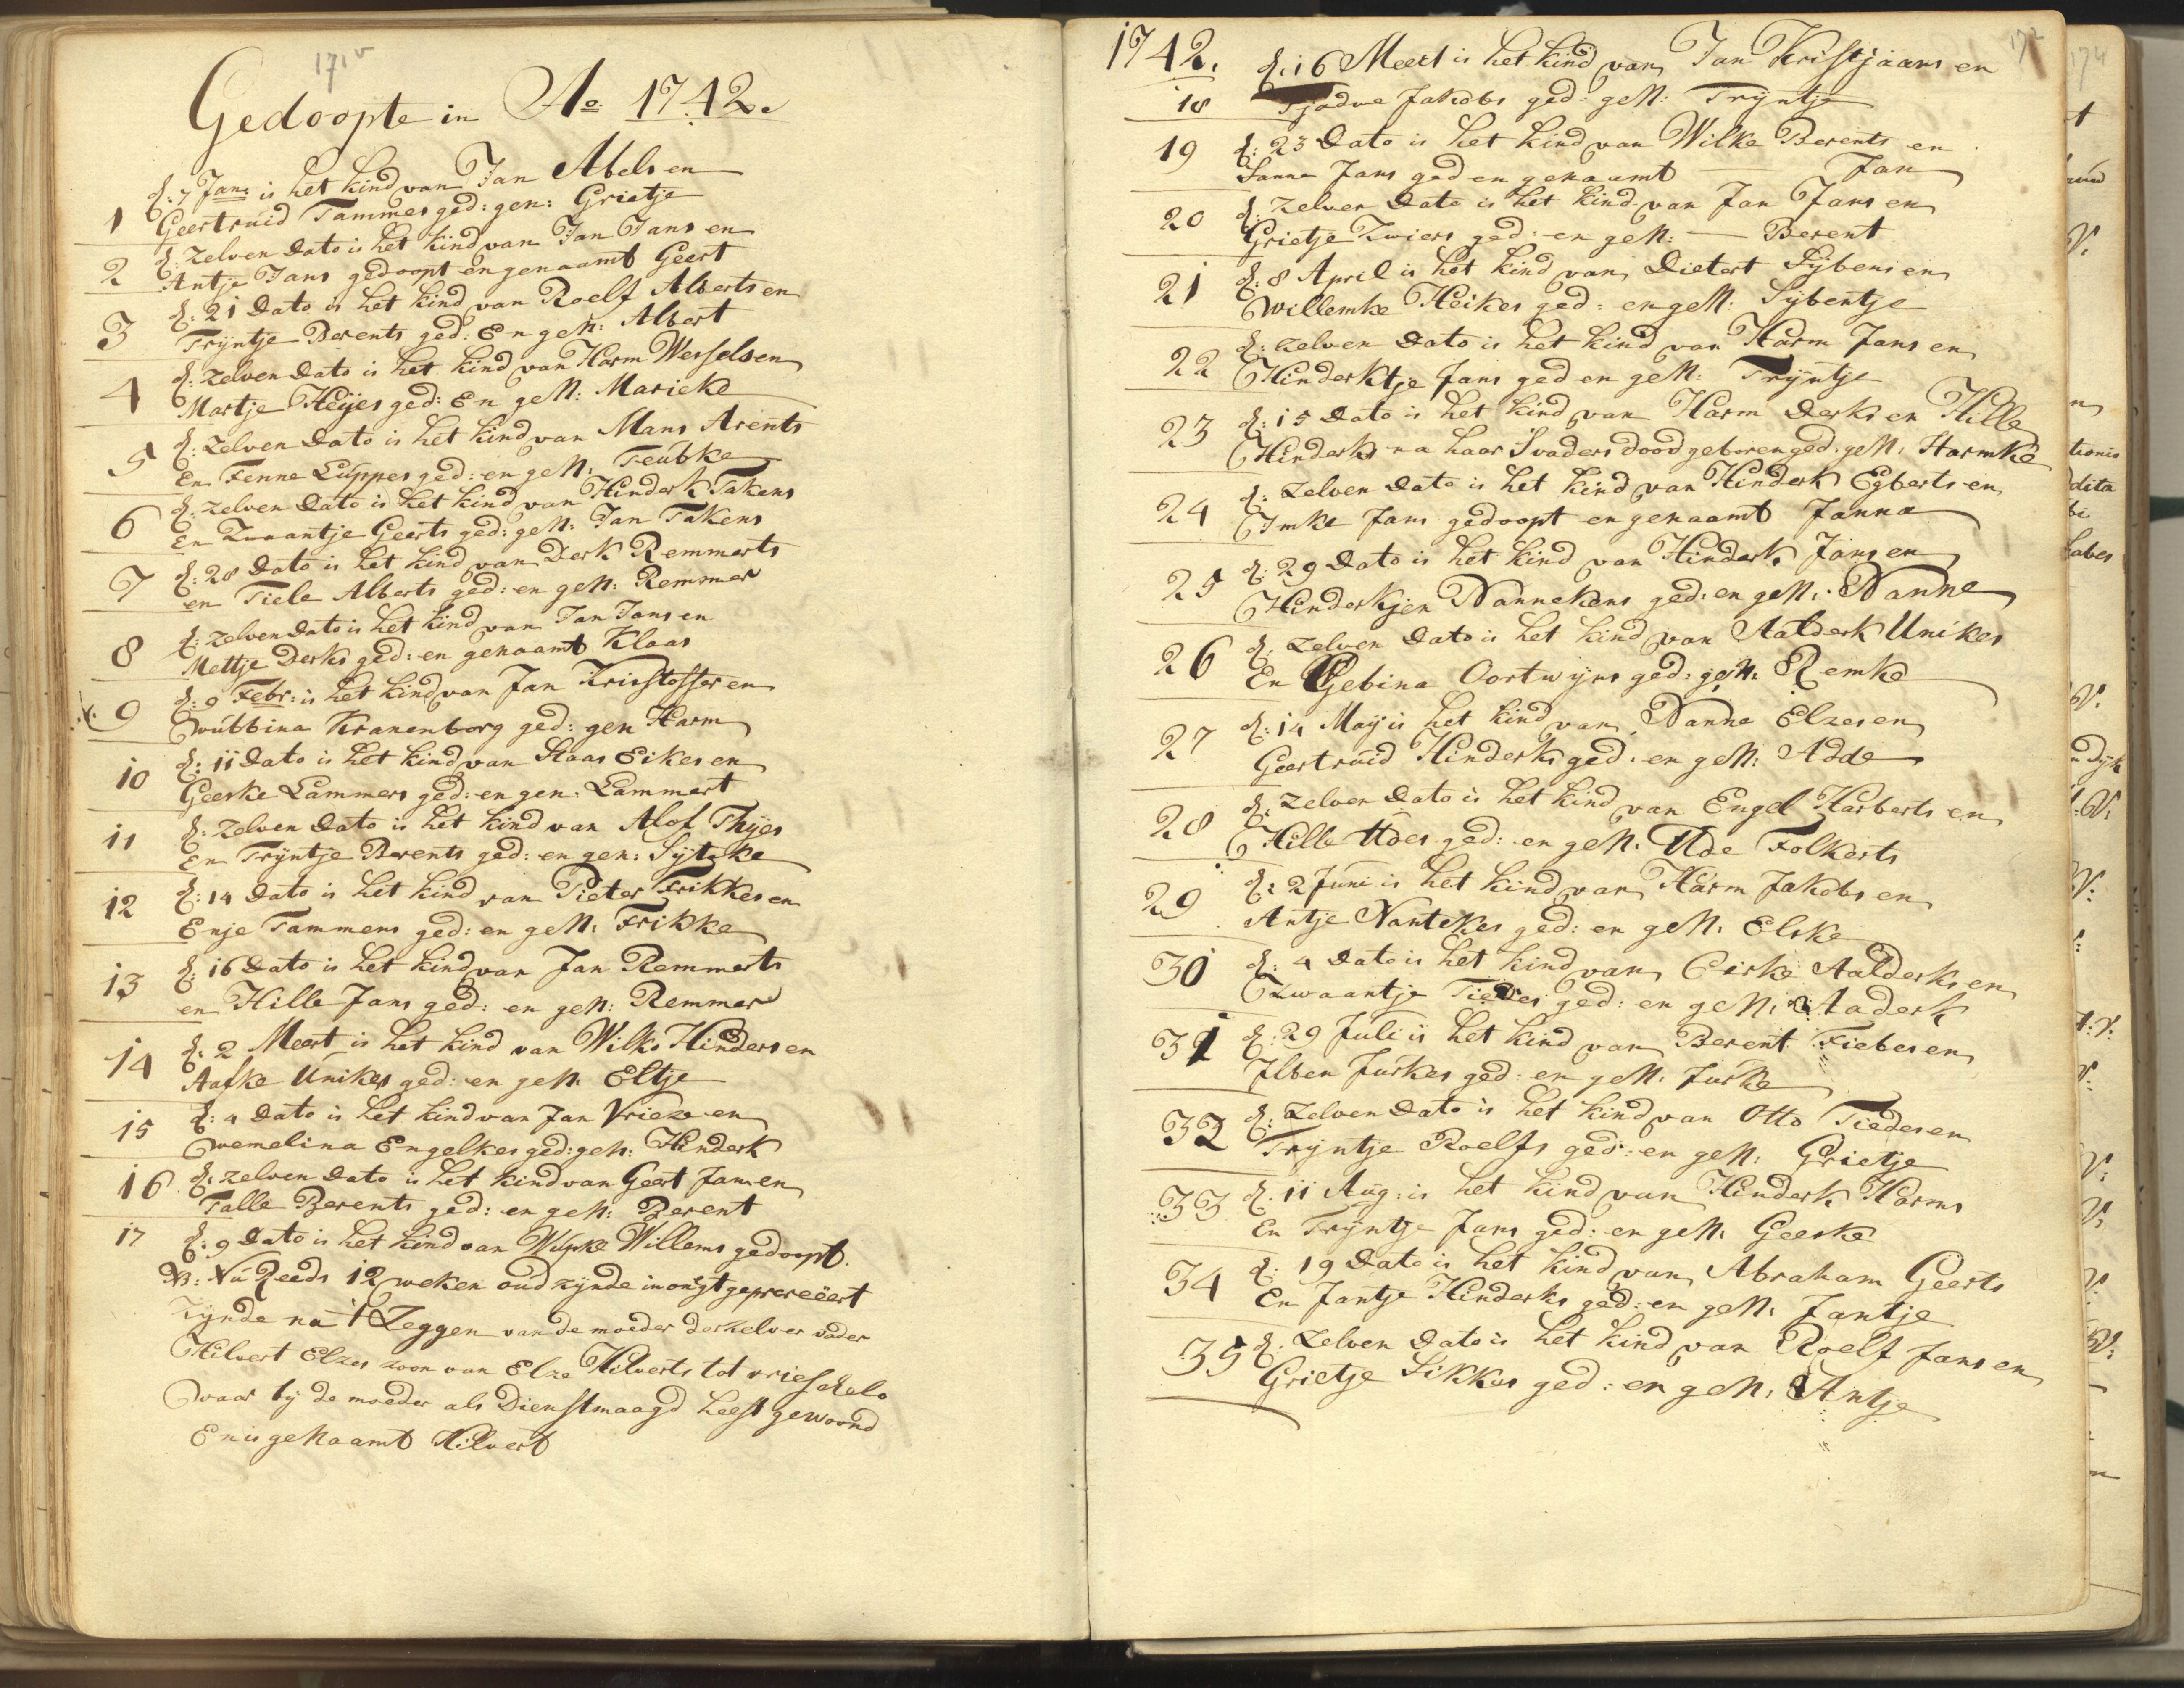 171v
Gedoopte in Ao 1742.
d: 7 Jan: is het kind van Jan Abels en
1 Geertruid Tammes ged: gen: Grietje
d: zelven Dato is het kind van Jan Jans en
2 Antje Jans gedoopt en genaamt Geert
d: 21 Dato is het kind van Roelf Alberts en
3 Trijntje Berents ged: En gen: Albert
d: zelven Dato is het kind van Harm Wessels en
4 Martje Heijes ged: En gen: Marieke
d: zelven Dato is het kind van Mans Arents
5 En Fenne Luppes ged: en gen: Feubke
d: zelven Dato is het kind van Hinderk Takens
6 En Zwaantje Geerts ged: gen: Jan Takens
d: 28 Dato is het kind van Derk Remmerts
7 en Tiele Alberts ged: en gen: Remmer
d: zelven Dato is het kind van Jan Jans en
8 Mettje Derks ged: en genaamt Klaas
d: 9 Febr: is het kind van Jan Kristoffer en
9 Wubbina Kranenborg ged: gen Harm
d: 11 Dato is het kind van Staas Eikes en
10 Geeske Lammers ged: en gen: Lammert
d: zelven Dato is het kind van Alof Thijes
11 En Trijntje Berents ged: en gen: Sijtske
d: 14 Dato is het kind van Pieter Frikkes en
12 Enje Tammens ged: en gen: Frikke
d: 16 Dato is het kind van Jan Remmerts
13 en Hille Jans ged: en gen: Remmer
d: 2 Meert is het kind van Wilko Hinders en
14 Aafke Unikes ged: en gen: Eltje
d: 4 Dato is het kind van Jan Vrieze en
15 Wemelina Engelkes ged: gen: Hinderk
d: zelven Dato is het kind van Geert Jans en
16 Talle Berents ged: en gen: Berent
17 d: 9 Dato is het kind van Wupke Willems gedoopt.
NB: Nu Reeds 12 weken oud zijnde in ongt geprocreëert
Zijnde na t Zeggen van de moeder derzelver vader
Hilvert Elzes zoon van Elze Hilverts tot vrieschelo
waar bij de moeder als Dienstmaagd heeft gewoond
En is genaamt Hilvert
1742. 172
d: 16 Meert is het kind van Jan Kristjaans en
18 Tjadwe Jakobs ged: gen: Trijntje
19 d: 23 Dato is het kind van Wilke Berents en
Sanna Jans ged en genaamt — Jan
20 d: zelven Dato is het kind van Jan Jans en
Grietje Zwiers ged: en gen: — Berent
21 d: 8 April is het kind van Dietert Sijbens en
Willemke Heikes ged: en gen: Sijbentje
d: zelven Dato is het kind van Harm Jans en
22 Hinderktje Jans ged en gen: Trijntje
23 d: 15 Dato is het kind van Harm Derks en Hille
Hinderks na haar S vaders dood geboren ged: gen: Harmke
24 d: zelven Dato is het kind van Hinderk Egberts en
Imke Jans gedoopt en genaamt Janna
25 d: 29 Dato is het kind van Hinderk Jans en
Hinderkjen Nannekens ged: en gen: Nanne
26 d: zelven Dato is het kind van Aalderk Unikes
En Gebina Oortwijns ged: gen: Remke
27 d: 14 Maij is het kind van Nanne Elzes en
Geertruid Hinderks ged: en gen: Adde
28 d: zelven Dato is het kind van Engel Harberts en
Hille Udes ged: en gen: Ude Folkerts
29 d: 2 Juni is het kind van Harm Jakobs en
Antje Nantekes ged: en gen: Elske
30 d: 4 Dato is het kind van Eiske Aalderks en
Zwaantje Tiedes ged: en gen: Aaderk
31 d: 29 Juli is het kind van Berent Fiebes en
Ilben Jurkes ged: en gen: Jurke
32 d: zelven Dato is het kind van Otto Tiedes en
Trijntje Roelfs ged: en gen: Grietje
33 d: 11 Aug: is het kind van Hinderk Harms
En Trijntje Jans ged: en gen: Geeske
34 d: 19 Dato is het kind van Abraham Geerts
En Jantje Hinderks ged: en gen: Jantje
35 d: zelven Dato is het kind van Roelf Jans en
Grietje Sikkes ged: en gen: Antje
174